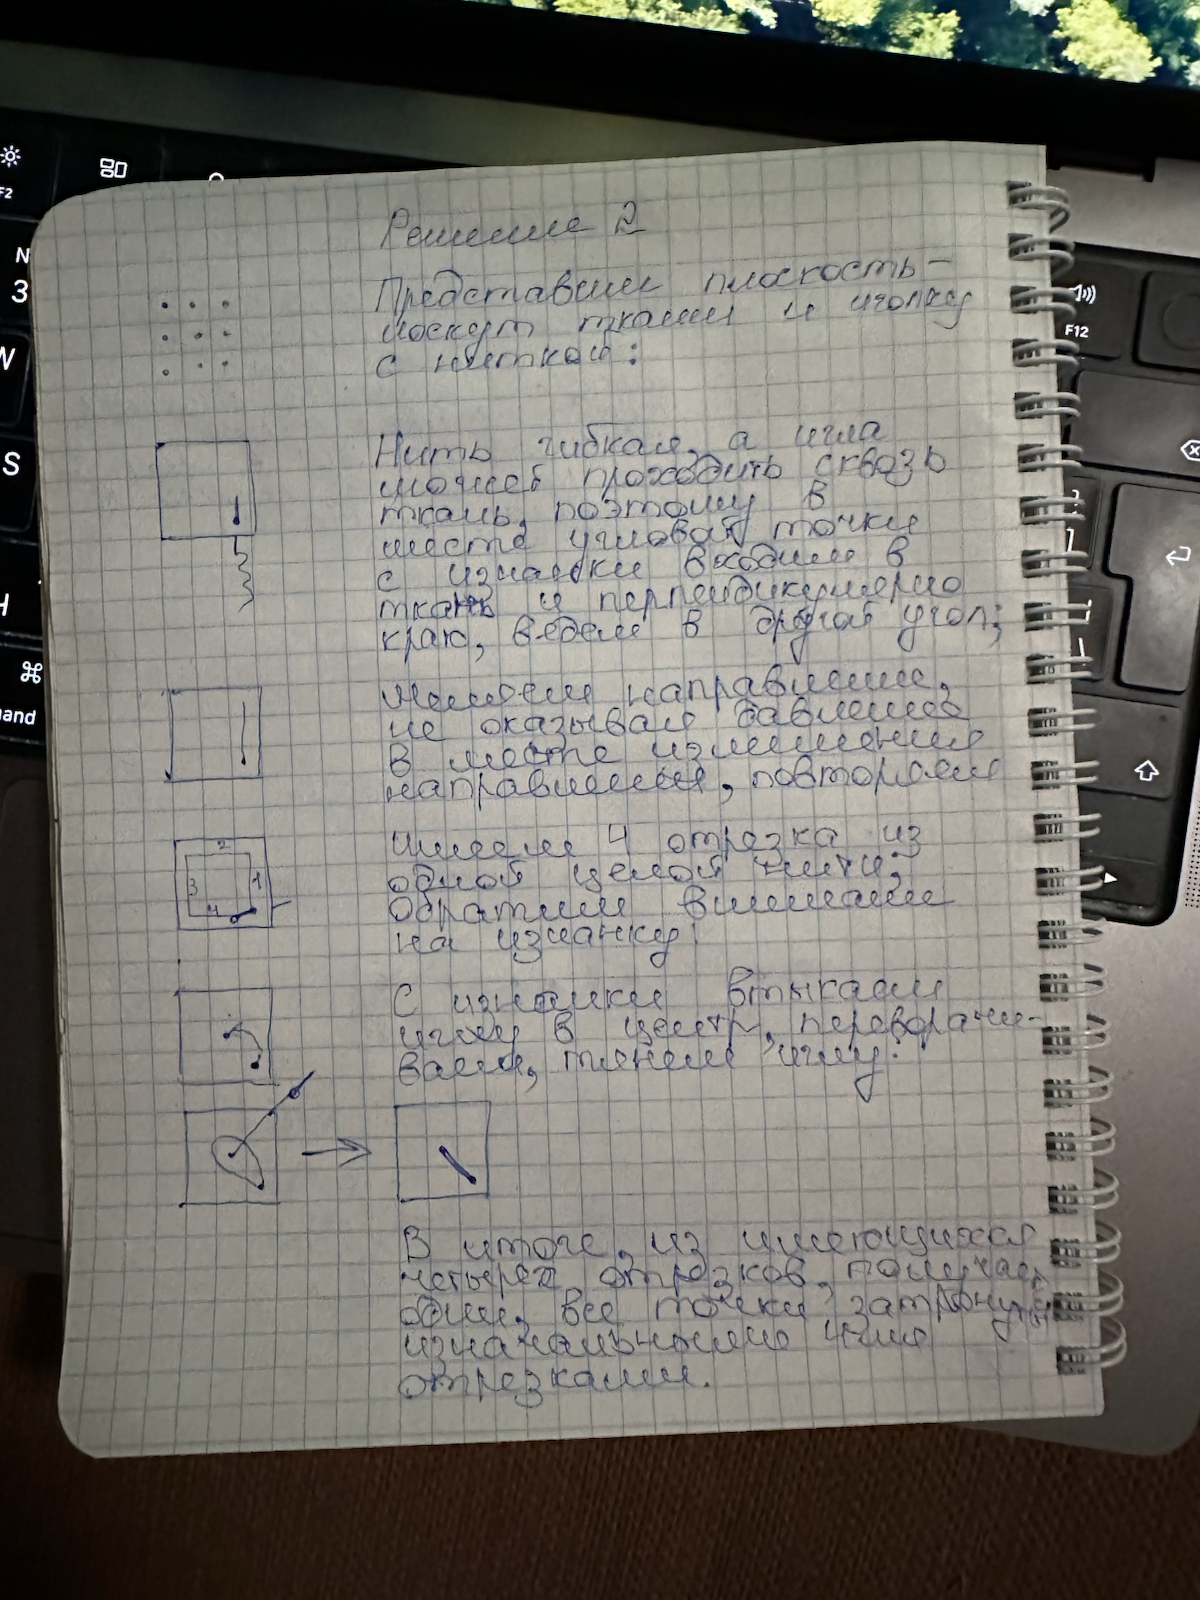 Решение 2
Представим плоскость -
лоскут ткани и иголку
с ниткой:
Нить гибкая, а игла
может проходить сквозь
ткань, поэтому в
месте угловой точки
с изнанки входим в
ткань и перпендикулярно
краю, ведем в другой угол;
Меняем направление,
не оказывая давления
в месте изменения
направления, повторяем
2
3
1
4
Имеем 4 отрезка из
одной целой нити;
Обратим внимание
на изнанку:
С изнанки втыкаем
иглу в центр, перевора­чи-
ваем, тянем иглу:
В итоге, из имеющихся
четырех отрезков, получаем
один, все точки затронуты
изначальными 4-мя
отрезками.
F2
N
3
W
S
H
⌘
mand
F12